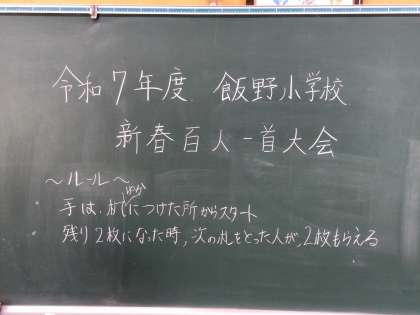 令和7年度 飯野小学校
新春百人一首大会
～ルール～
手は、ゆかにつけた所からスタート
残り2枚になった時、次の札をとった人が、2枚もらえる